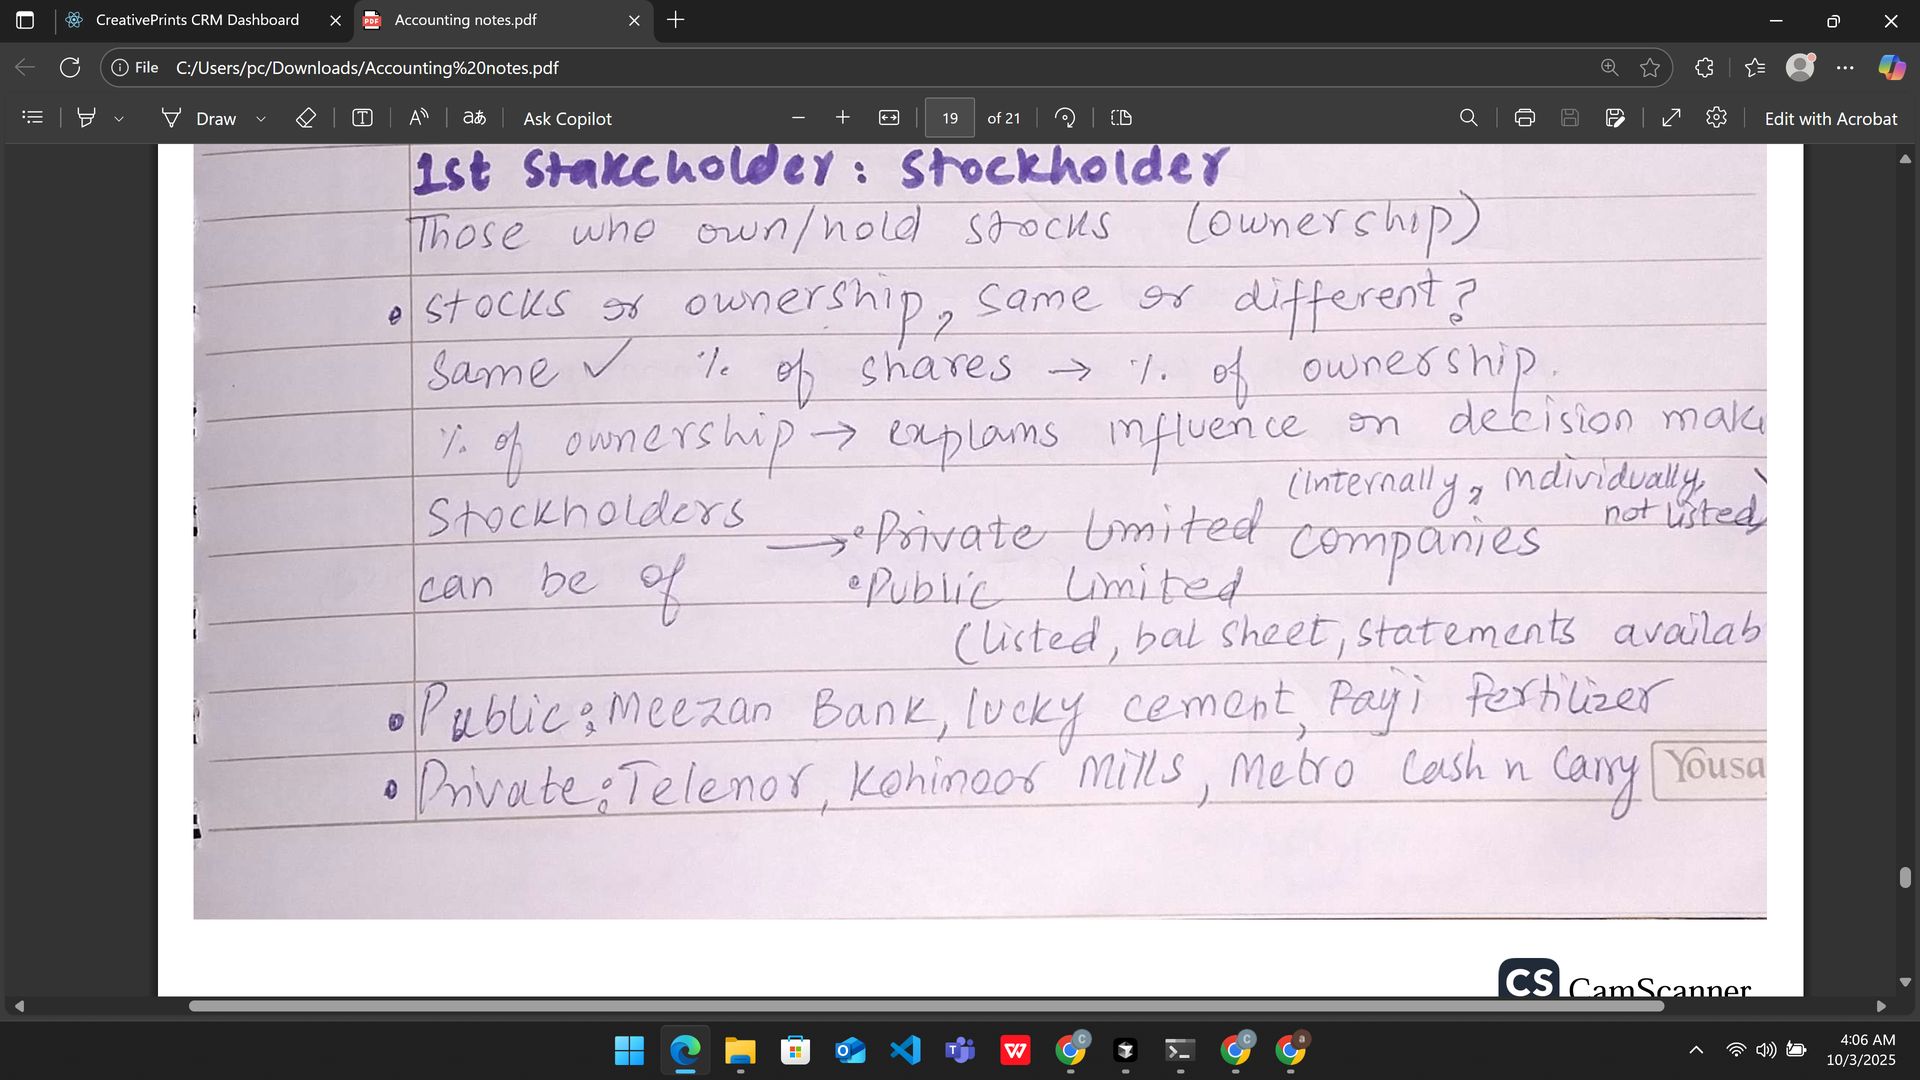 CreativePrints CRM Dashboard
Accounting notes.pdf
File C:/Users/pc/Downloads/Accounting%20notes.pdf
Draw
Ask Copilot
19 of 21
Edit with Acrobat
1st Stakeholder: Stockholder
Those who own/hold stocks (ownership)
• stocks or ownership, same or different?
Same ✓ % of shares → % of ownership.
% of ownership → explains influence on decision mak
Stockholders
can be of → • Private Limited companies (internally, individually, not listed)
• Public Limited
(listed, bal sheet, statements availab
• Public: Meezan Bank, lucky cement, Fayji Fertilizer
• Private: Telenor, Kohinoor Mills, Metro Cash n Carry
Yousa
CS CamScanner
4:06 AM
10/3/2025